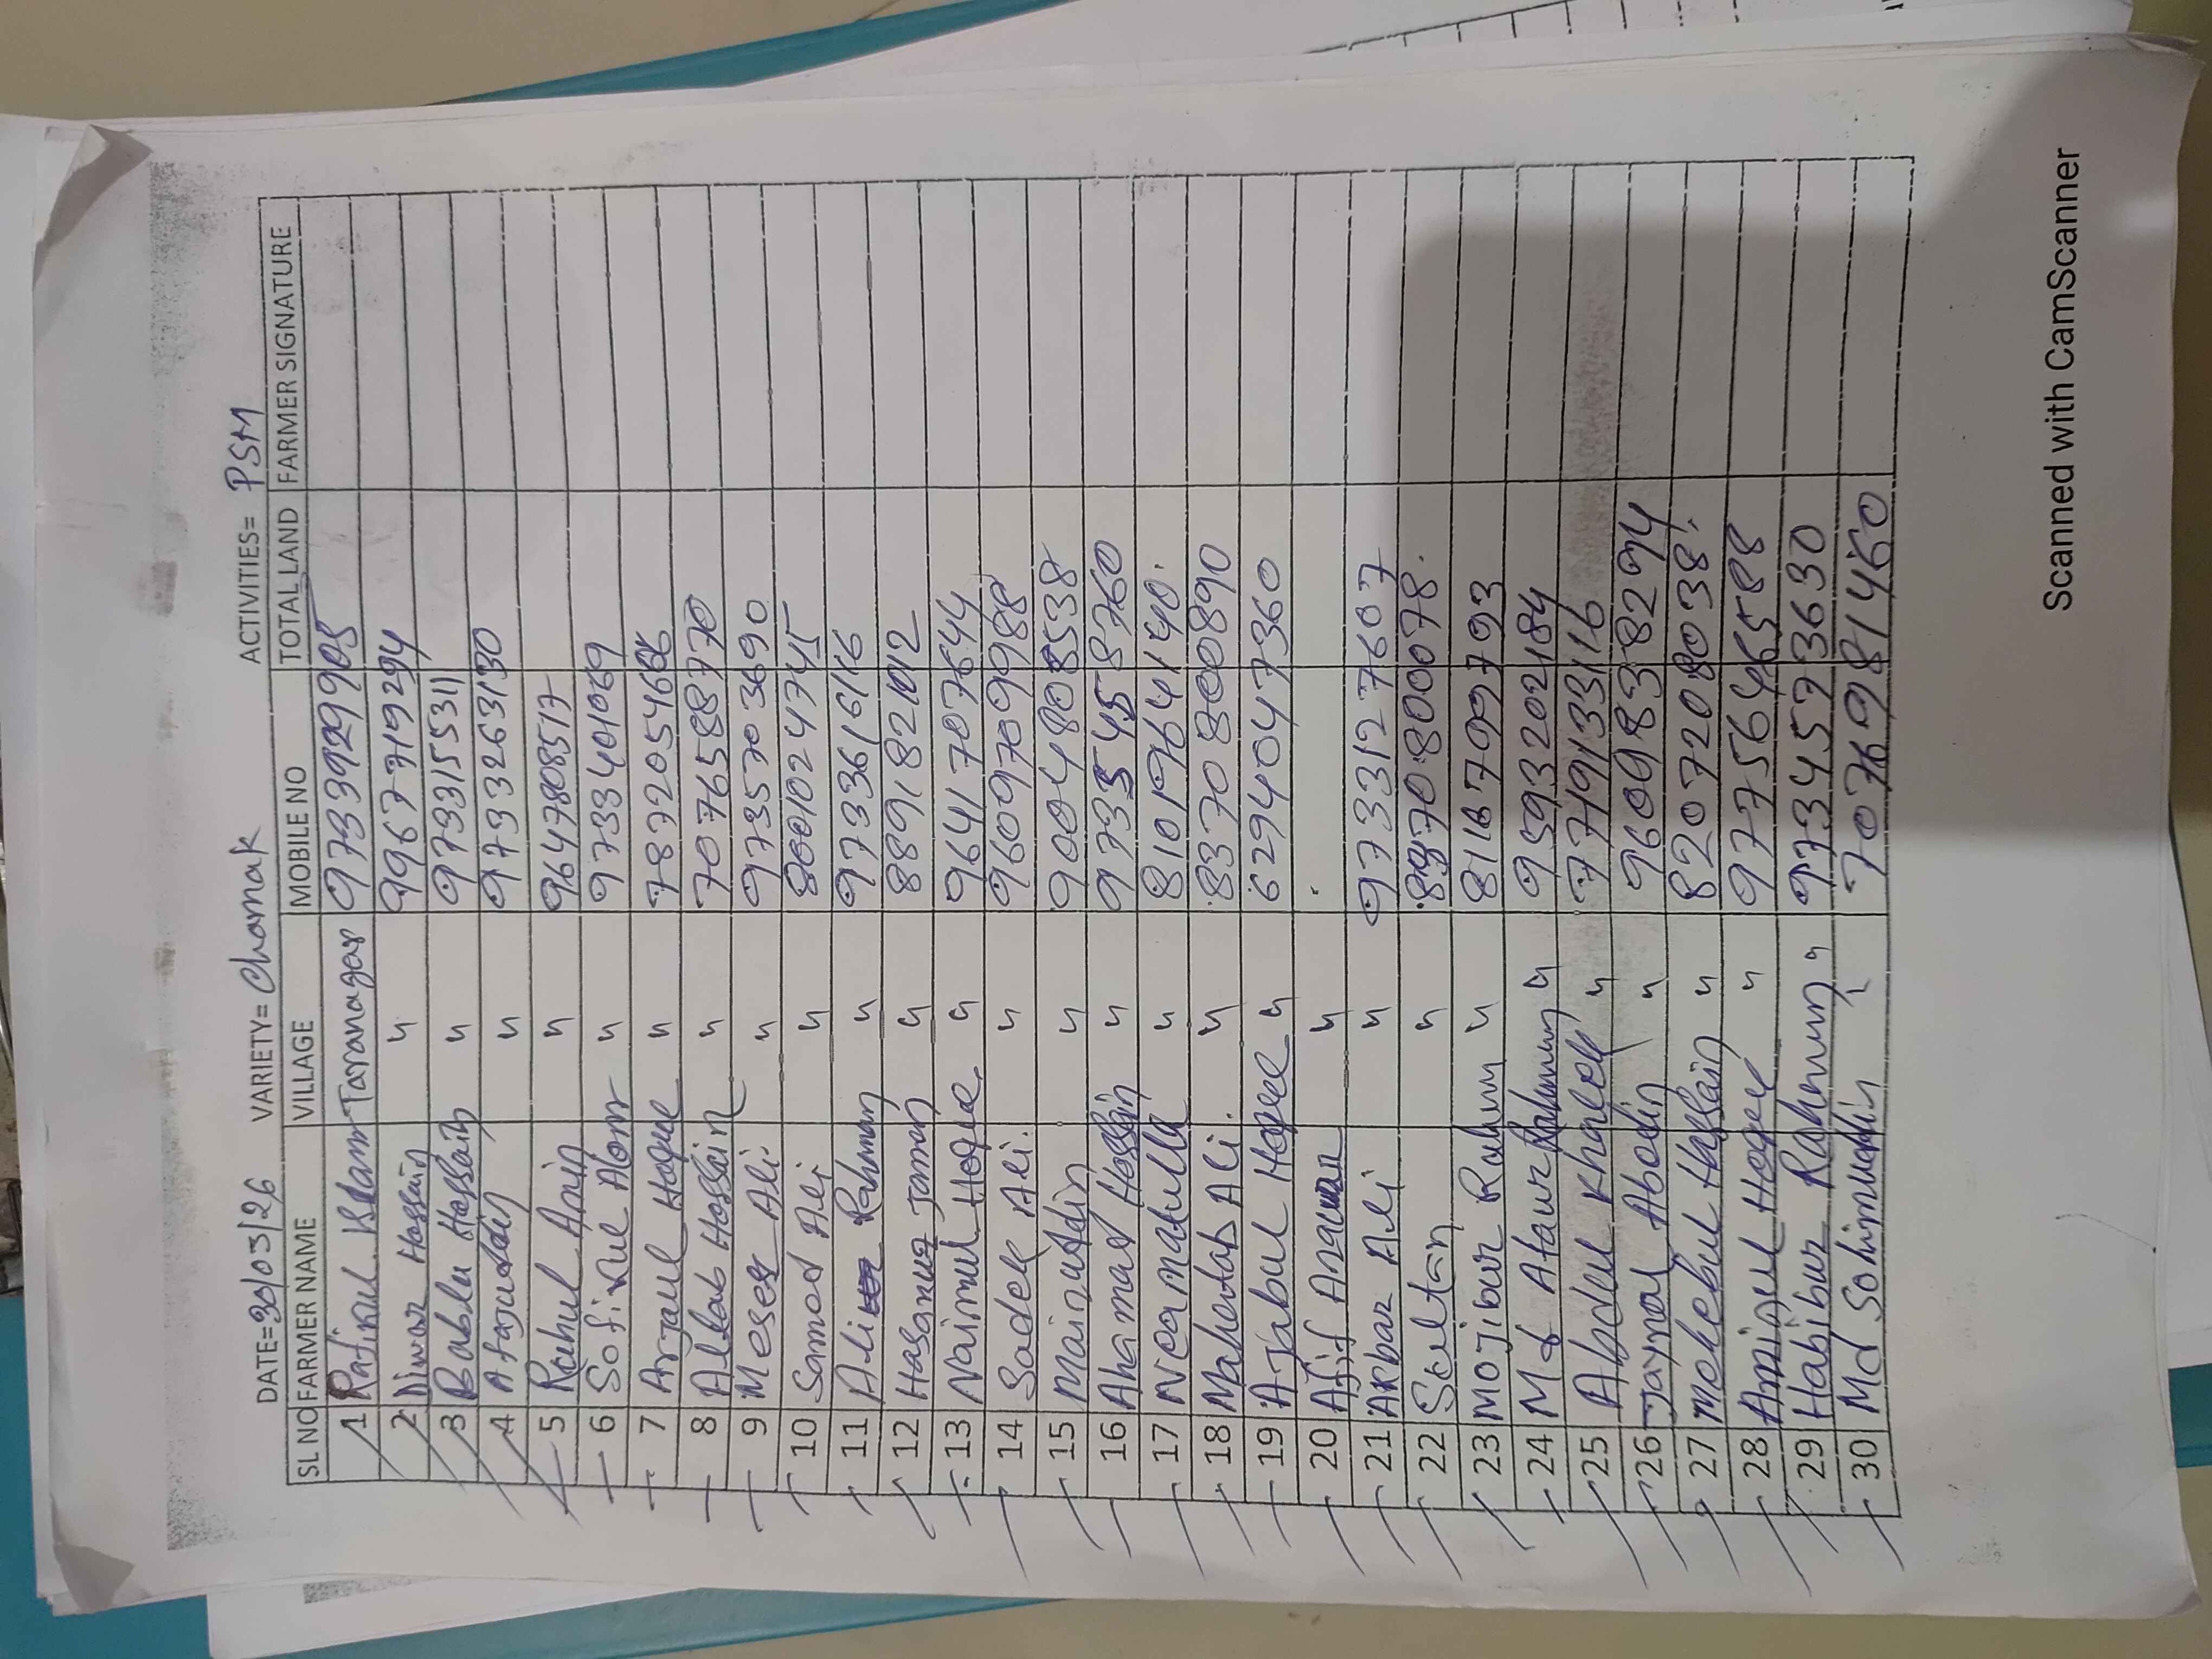 DATE=30/03/26 VARIETY= Chamak ACTIVITIES= PSM
SL NO FARMER NAME VILLAGE MOBILE NO TOTAL LAND FARMER SIGNATURE
1 Rafinul Islam Taranagar 9733929905
2 Diwar Hossain " 9967719294
3 Bablu Hossain " 9733155311
4 Afajuddin " 9733263130
5 Rahul Amin " 9647808517
6 Sofikul Alom " 9733401069
7 Arjaul Hoque " 7872054686
8 Altab Hossain " 7076588770
9 Meser Ali " 9735703690
10 Samod Ali " 8001024745
11 Ali Rahman " 9733616116
12 Hasanuz Jaman " 8891821012
13 Naimul Hoque " 9641707644
14 Sadek Ali. " 9609709988
15 Mainuddin " 9004808538
16 Ahamad Hossain " 9735458760
17 Neamatulla " 8101964140.
18 Mahertab Ali. " 8370800890
19 Ajabul Hoque " 6294047360
20 Anawar "
21 Akbar Ali " 9733127607
22 Sultan " 8970800078.
23 Mojibur Rahman " 8116709793
24 Md Ataur Rahman " 9593202184
25 Abdul Khalek " 7749133116
26 Jaynal Abedin " 9609838294
27 Mehebul Hassain " 8207208038.
28 Aminul Hoque " 9775646588
29 Habibur Rahman " 9734573630
30 Md Sohimuddin " 7076981460
Scanned with CamScanner